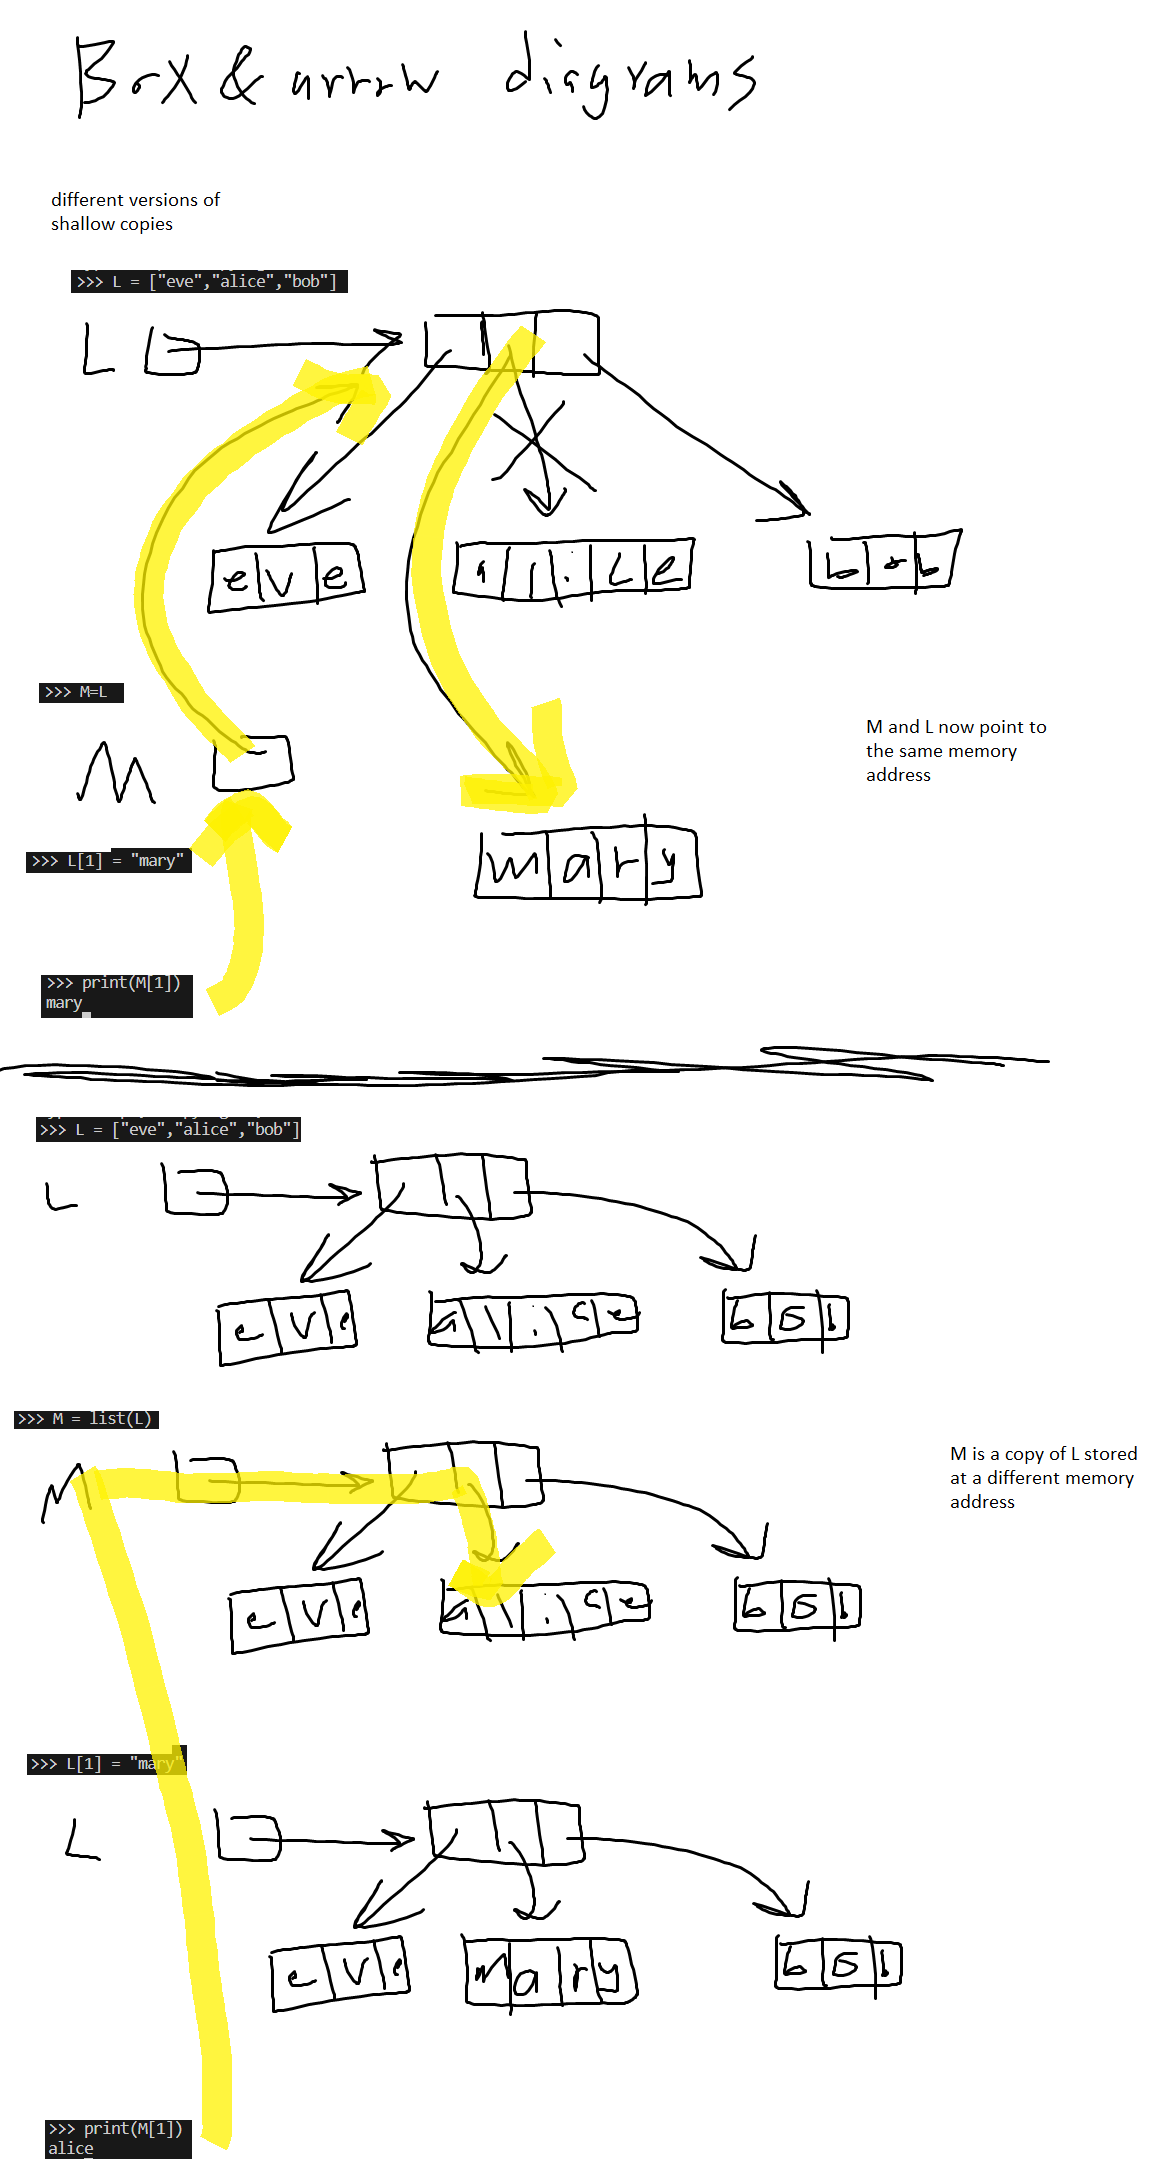 Box & arrow diagrams
different versions of
shallow copies
>>> L = ["eve","alice","bob"]
L
eve alice bob
>>> M=L
M and L now point to
the same memory
address
M
>>> L[1] = "mary"
mary
>>> print(M[1])
mary
>>> L = ["eve","alice","bob"]
L
eve alice bob
>>> M = list(L)
M is a copy of L stored
at a different memory
address
M
eve alice bob
>>> L[1] = "mary"
L
eve mary bob
>>> print(M[1])
alice